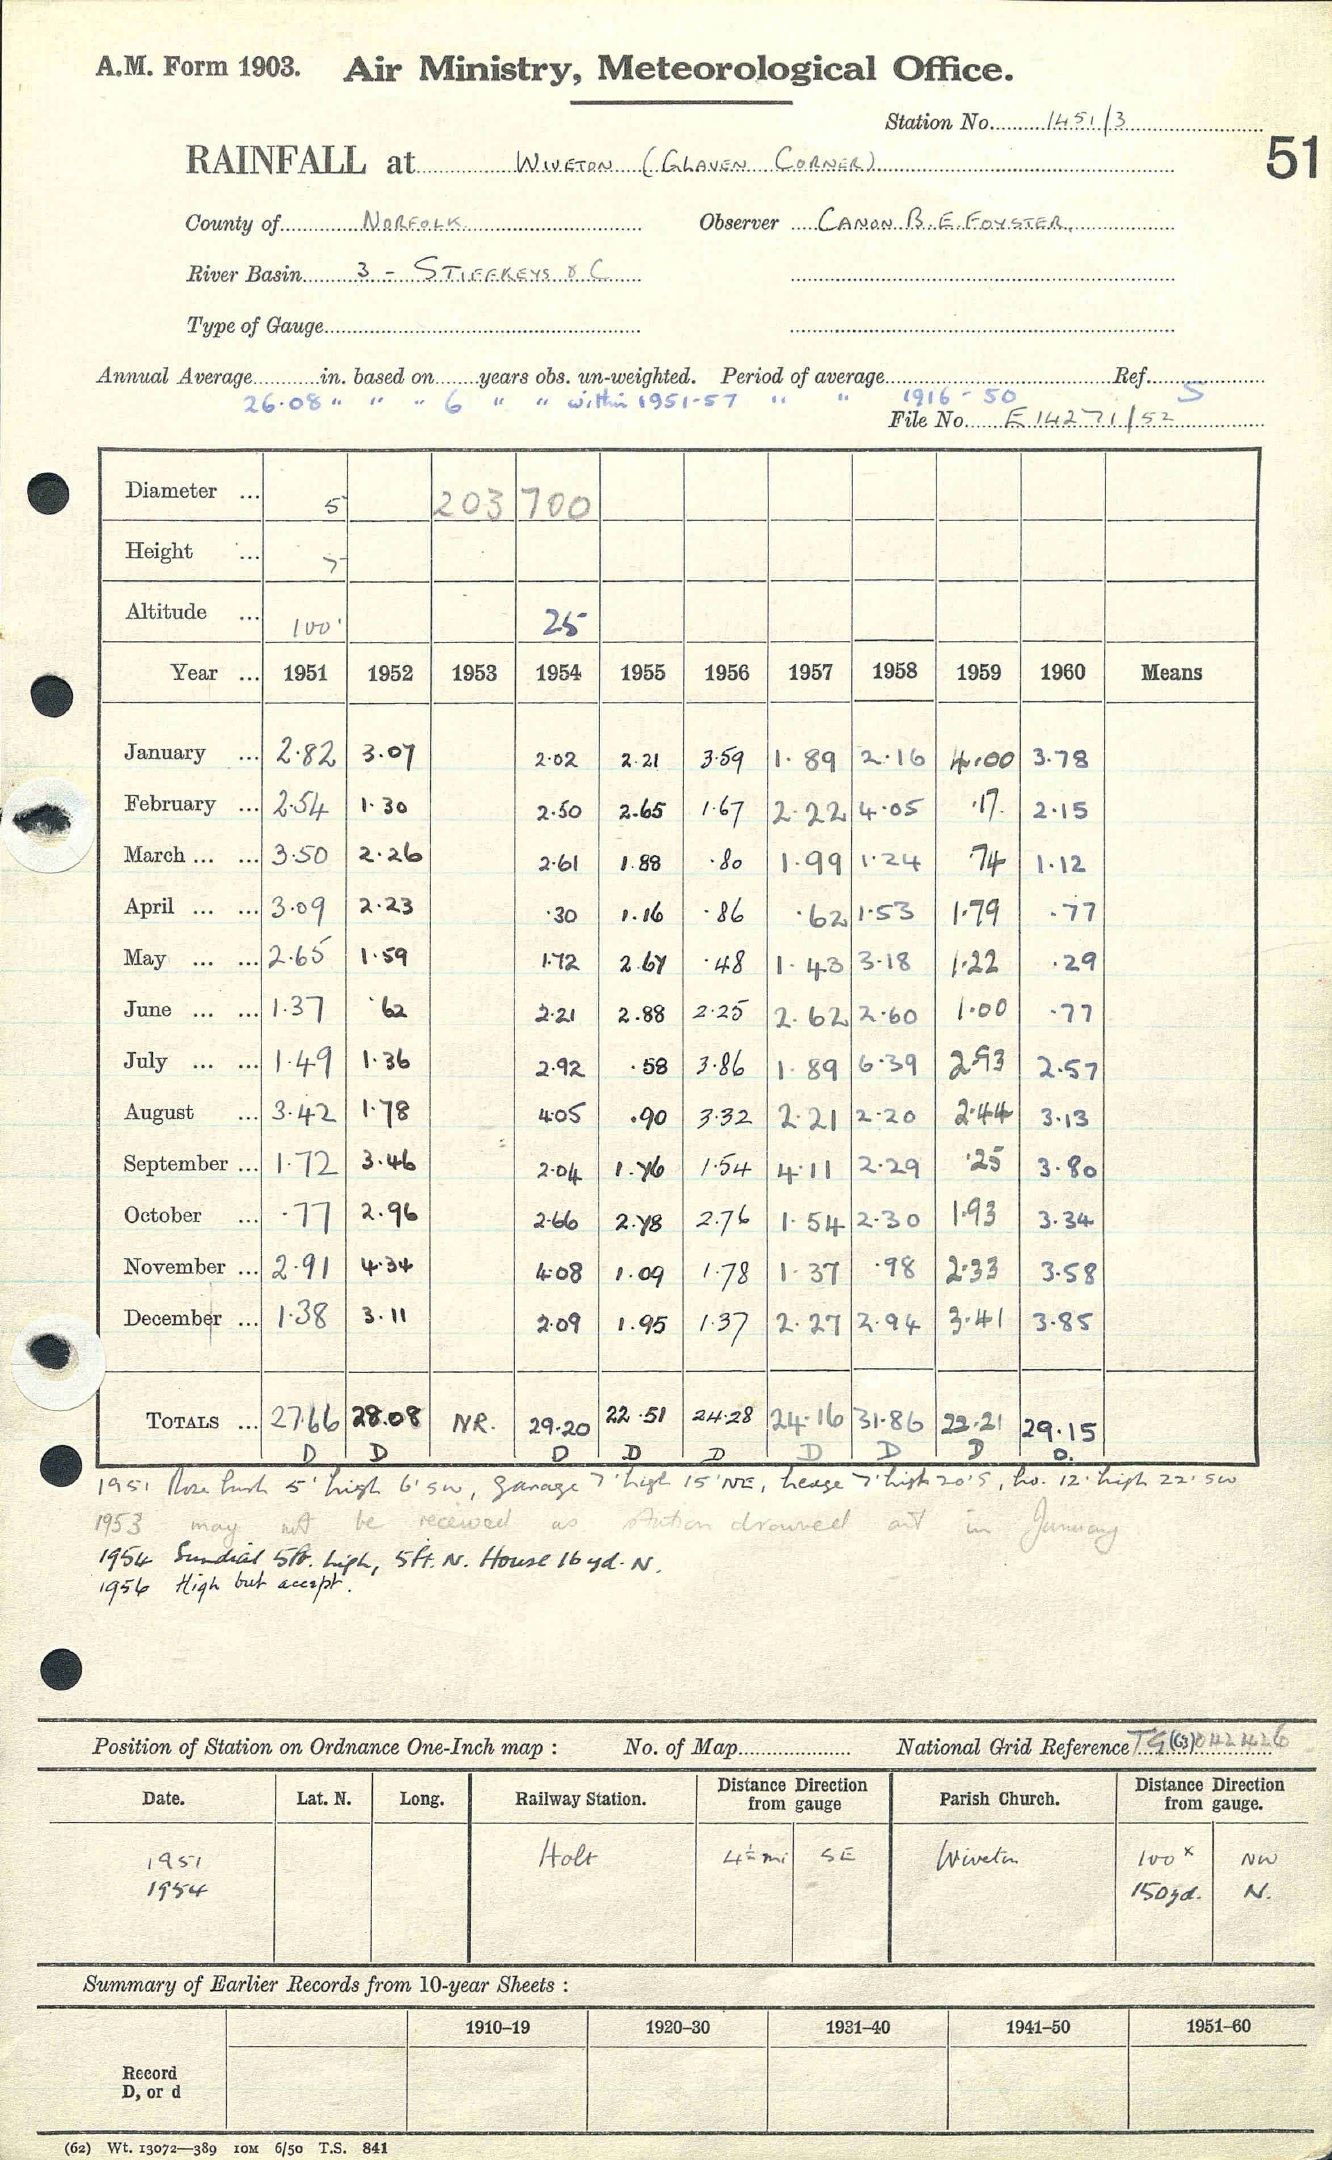 A.M. Form 1903. Air Ministry, Meteorological Office.
Station No. 1451/3
51
RAINFALL at WIVETON (GLAVEN CORNER)
County of NORFOLK Observer CANON B.E. FOYSTER.
River Basin 3 - STIFFKEYS & C
Type of Gauge
Annual Average in. based on years obs. un-weighted. Period of average Ref.
26.08 " " " 6 " " within 1951-57 " " 1916-50 S
File No. E 14271/52
Diameter ... 5 203 700
Height ...
Altitude ... 100' 25
Year ... 1951 1952 1953 1954 1955 1956 1957 1958 1959 1960 Means
January ... 2.82 3.07 2.02 2.21 3.59 1.89 2.16 4.00 3.78
February ... 2.54 1.30 2.50 2.65 1.67 2.22 4.05 .17 2.15
March ... ... 3.50 2.26 2.61 1.88 .80 1.99 1.24 .74 1.12
April ... ... 3.09 2.23 .30 1.16 .86 .62 1.53 1.79 .77
May ... ... 2.65 1.59 1.72 2.67 .48 1.43 3.18 1.22 .29
June ... ... 1.37 .62 2.21 2.88 2.25 2.62 2.60 1.00 .77
July ... ... 1.49 1.36 2.92 .58 3.86 1.89 6.39 2.93 2.57
August ... 3.42 1.78 4.05 .90 3.32 2.21 2.20 2.44 3.13
September ... 1.72 3.46 2.04 1.76 1.54 4.11 2.29 .25 3.80
October ... .77 2.96 2.66 2.78 2.76 1.54 2.30 1.93 3.34
November ... 2.91 4.34 4.08 1.09 1.78 1.37 .98 2.33 3.58
December ... 1.38 3.11 2.09 1.95 1.37 2.27 2.94 3.41 3.85
TOTALS ... 27.66 28.08 NR. 29.20 22.51 24.28 24.16 31.86 22.21 29.15
D D D D D D D D D.
1951 Rose bush 5' high 6' SW, garage 7' high 15' NE, hedge 7' high 20' S, ho. 12' high 22' SW
1953 may not be received as station drowned out in January
1954 Sundial 5ft. high, 5ft. N. House 16yd. N.
1956 High but accept.
Position of Station on Ordnance One-Inch map : No. of Map National Grid Reference TG (63) 042426
Date. Lat. N. Long. Railway Station. Distance Direction from gauge Parish Church. Distance Direction from gauge.
1951 Holt 4½ mi SE Wiveton 100 x NW
1954 150yd. N.
Summary of Earlier Records from 10-year Sheets :
1910–19 1920–30 1931–40 1941–50 1951–60
Record
D, or d
(62) Wt. 13072—389 10M 6/50 T.S. 841